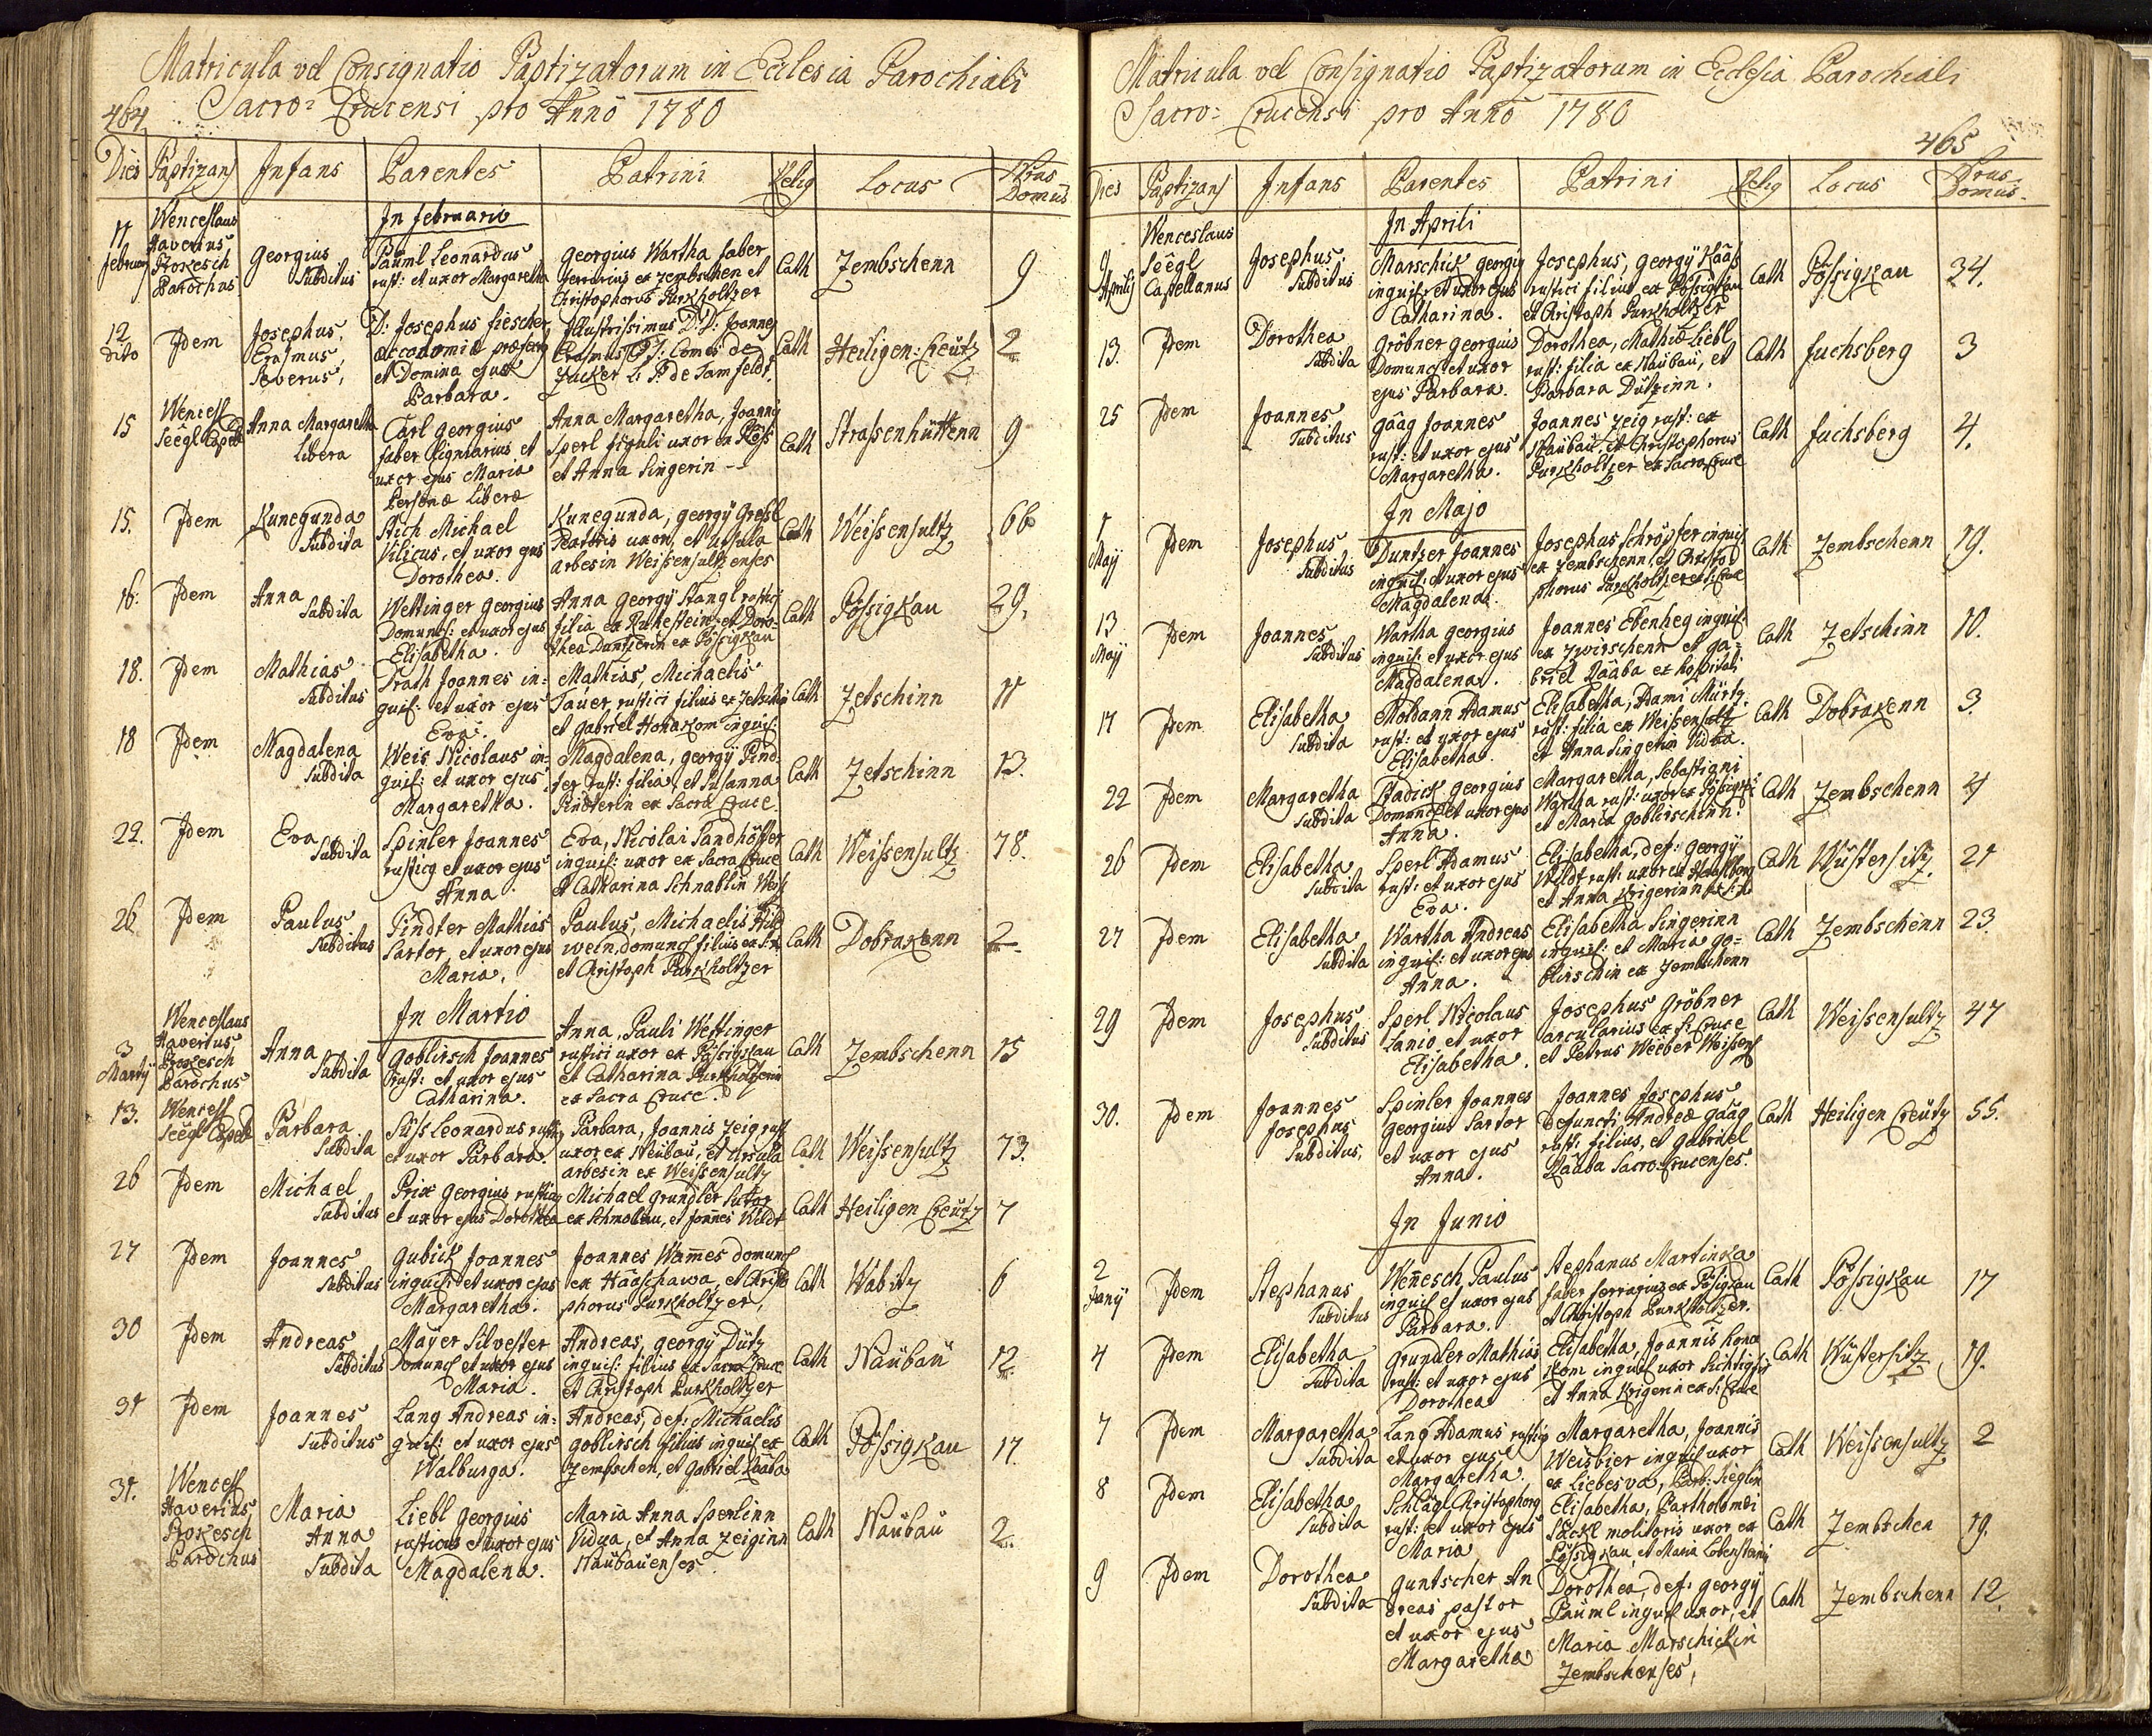 Matricula vel Consignatio Baptizatorum in Ecclesia Parochiali
464 Sacro= Crucensi pro Anno 1780
Dies Baptizans Infans Parentes Patrini Relig Locus Nrus Domus
In februario
11 februarij Wenceslaus Xaverius Prokesch Parochus
Georgius Subditus
Bäuml Leonardus
rust: et uxor Margaretha
Georgius Wartha faber
ferrarius ex Zembschen et
Christophorus Purkholtzer
Cath Zembschenn 9
12 dito Idem
Josephus, Erasmus, Severus,
D: Josephus fiescher
oeconomiæ præfect9
et Domina ejus
Barbara.
Illustrissimus D: D: Joannes
Erasmus Comes de
Zucker L: B: de Tamfeldt.
Cath Heiligen: Creütz 2
15 Wencesl Seegl Capell
Anna Margaretha Libera
Carl Georgius
faber lignarius et
uxor ejus Maria
Personæ Liberæ
Anna Margaretha, Joannis
Sperl figuli uxor ex
et Anna Singerin
Cath Strassenhüttenn 9
15. Idem
Kunegunda Subdita
Stich Michael
Vilicus, et uxor ejus
Dorothea.
Kunegunda, georgÿ Gressl
uxor, et Ursula
arbesin Weissensultzenses
Cath Weissensultz 66
16. Idem
Anna Subdita
Wettinger Georgius
Domuncl: et uxor ejus
Elisabetha.
Anna georgÿ Stangl rustici
filia ex Ruhestein, et Doro-
thea Duntzerin ex Pössigkau
Cath Pössigkau 29.
18. Idem
Mathias Subditus
Prath Joannes in=
quil: et uxor ejus
Eva.
Mathias, Michaelis
Tauer, rustici filius ex Zetschin
et Gabriel Honakom inquil:
Cath Zetschinn 11
18 Idem
Magdalena Subdita
Weis Nicolaus in-
quil: et uxor ejus
Margaretha.
Magdalena, georgÿ Pind-
ter rust: filia, et Susanna
Pindterin ex Sacra Cruce.
Cath Zetschinn 13.
22. Idem
Eva Subdita
Spinler Joannes
rustic9 et uxor ejus
Anna
Eva, Nicolai Sandhöffer
inquil: uxor ex Sacra Cruce
et Catharina Schnablin Weiss
Cath Weissensultz 78.
26 Idem
Paulus Subditus
Pindter Mathias
Sartor, et uxor ejus
Maria.
Paulus, Michaelis Hild-
wein domuncl filius ex
et Christoph Purkholtzer
Cath Dobrakenn 2
In Martio
3 Martÿ Wenceslaus Xaverius Prokesch Parochus
Anna Subdita
Goblirsch Joannes
rust: et uxor ejus
Catharina.
Anna, Pauli Wettinger
rustici uxor ex Pössigkau
et Catharina Purkholtzerin
ex Sacra Cruce.
Cath Zembschenn 15
13. Wencesl Seegl Capell
Barbara Subdita
Süss Leonardus rustic9
et uxor Barbara.
Barbara, Joannis Zeig rust
uxor ex Neübau, et Ursula
arbesin ex Weissensultz
Cath Weissensultz 73.
26 Idem
Michael Subditus
Prix Georgius rustic9
et uxor ejus Dorothea
Michael Grundler Sutor
ex Schmolau, et Joannes Wildt
Cath Heiligen Creütz 7
27 Idem
Joannes Subditus
Gubick Joannes
inquil: et uxor ejus
Margaretha.
Joannes Wames domuncl
ex Haaschawa, et Christo
phorus Purkholtzer,
Cath Wabitz 6
30 Idem
Andreas Subditus
Mayer Silvester
Domuncl et uxor ejus
Maria.
Andreas, georgÿ Dütz
inquil: filius ex Sacra Cruce
et Christoph Purkholtzer
Cath Naübaü 12
31 Idem
Joannes Subditus
Lang Andreas in=
quil: et uxor ejus
Walburga.
Andreas, def: Michaelis
Goblirsch filius inquil ex
Zembschen, et Gabriel Raaba
Cath Pössigkau 17.
31. Wencesl Xaverius Prokesch Parochus
Maria Anna Subdita
Liebl Georgius
rusticus et uxor ejus
Magdalena.
Maria Anna Sperlinn
Vidua, et Anna Zeiginn
Naübauenses.
Cath Naübau 2.
Matricula vel Consignatio Baptizatorum in Ecclesia Parochiali
Sacro= Crucensi pro Anno 1780
465
Dies Baptizans Infans Parentes Patrini Relig Locus Nrus Domus.
In Aprili
9 Aprilis Wenceslaus Seegl Capellanus
Josephus: Subditus
Marschick georgi9
inquil: et uxor ejus
Catharina.
Josephus, georgÿ Kääs
rustici filius ex Pössigkau
et Christoph Purkholtzer
Cath Pössigkau 34.
13. Idem
Dorothea Subdita
Gröbner georgius
Domuncl et uxor
ejus Barbara.
Dorothea, Mathiæ Liebl
rust: filia ex Naübaü, et
Barbara Dützinn.
Cath fuchsberg 3
25 Idem
Joannes Subditus
Gaag Joannes
rust: et uxor ejus
Margaretha.
Joannes Zeig rust: ex
Naübaü, et Christophorus
Purkholtzer ex Sacra Cruce
Cath fuchsberg 4.
In Majo
1 Maÿ Idem
Josephus Subditus
Duntzer Joannes
inquil: et uxor ejus
Magdalena.
Josephus Schröpfer inquil
ex Zembschenn, et Christo-
phorus Purkholtzer ex S: Cruce
Cath Zembschenn 19.
13 Maÿ Idem
Joannes Subditus
Wartha georgius
inquil: et uxor ejus
Magdalena.
Joannes Ebenheg inquil
ex Zwirschenn et ga=
briel Raaba ex hospitali
Cath Zetschinn 10.
17 Idem
Elisabetha Subdita
Moldann Adamus
rust: et uxor ejus
Elisabetha.
Elisabetha, Adami Mürtz
rust: filia ex Weissensultz
et Anna Singerin Vidua.
Cath Dobrakenn 3.
22 Idem
Margaretha Subdita
Radick georgius
Domuncl et uxor ejus
Anna.
Margaretha, Sebastiani
Wartha rust: uxor ex Pössigkau
et Maria Goblirschinn.
Cath Zembschenn 4
26 Idem
Elisabetha Subdita
Sperl Adamus
rust: et uxor ejus
Eva.
Elisabetha, def: georgÿ
Wildt rust: uxor ex
et Anna Krigerinn ex S: C:
Cath Wüstersitz. 21
27 Idem
Elisabetha Subdita
Wartha Andreas
inquil: et uxor ejus
Anna.
Elisabetha Singerinn
inquil: et Maria go=
blirschin ex Zembschenn
Cath Zembschenn 23.
29 Idem
Josephus Subditus
Sperl Nicolaus
Lanio et uxor
Elisabetha.
Josephus Gröbner
arcularius ex S: Cruce
et Petrus Weeber Weissens
Cath Weissensultz 47
30. Idem
Joannes Josephus Subditus,
Spinler Joannes
Georgius Sartor
et uxor ejus
Anna.
Joannes Josephus
Defuncti Andreæ Gaag
rust: filius, et Gabriel
Raaba Sacro-Crucenses.
Cath Heiligen Creütz 55.
In Junio
2 Junÿ Idem
Stephanus Subditus
Wenesch Paulus
inquil et uxor ejus
Barbara.
Stephanus Martinka
faber ferrarius ex Pössigkau
et Christoph Purkholtzer.
Cath Pössigkau 17
4 Idem
Elisabetha Subdita
Grundler Mathias
rust: et uxor ejus
Dorothea
Elisabetha, Joannis Hona
kom inquil uxor
et Anna Krigerin ex S: Cruce
Cath Wüstersitz 19.
7 Idem
Margaretha Subdita
Lang Adamus rustic9
et uxor ejus
Margaretha.
Margaretha, Joannis
Weisbier inquil uxor
ex Liebesva, Barb: Sieglin
Cath Weissensultz 2
8 Idem
Elisabetha Subdita
Schlagl Christophorg
rust: et uxor ejus
Maria
Elisabetha, Bartholomæi
Säckl molitoris uxor ex
Pössigkau, et Maria Lobensteinin
Cath Zembschen 19.
9 Idem
Dorothea Subdita
Guntscher An
dreas pastor
et uxor ejus
Margaretha
Dorothea, def: georgÿ
Bäuml inquil uxor, et
Maria Marschickin
Zembschenses,
Cath Zembschenn 12.